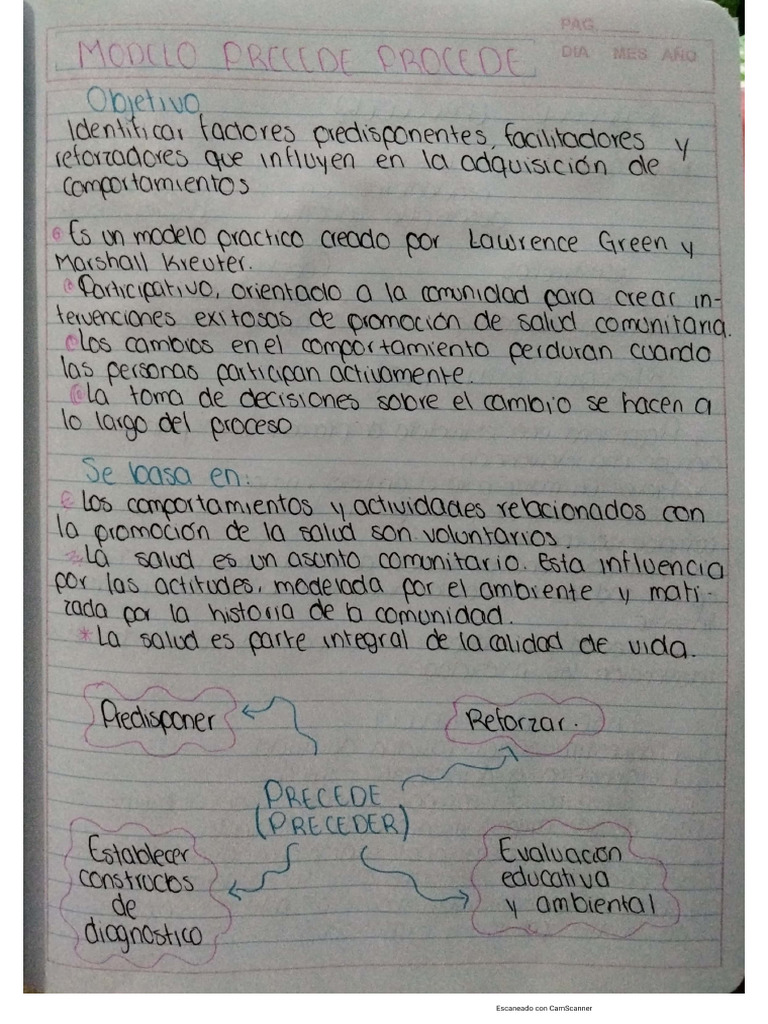 PAG.
DIA MES AÑO
MODELO PRECEDE PROCEDE
Objetivo
Identificar factores predisponentes, facilitadores y
reforzadores que influyen en la adquisición de
comportamientos
Es un modelo practico creado por Lawrence Green y
Marshall Kreuter.
Participativo, orientado a la comunidad para crear in-
tervenciones exitosas de promoción de salud comunitaria.
Los cambios en el comportamiento perduran cuando
las personas participan activamente.
La toma de decisiones sobre el cambio se hacen a
lo largo del proceso
Se basa en:
Los comportamientos y actividades relacionados con
la promoción de la salud son voluntarios.
La salud es un asunto comunitario. Esta influencia
por las actitudes, modelada por el ambiente y mati-
zada por la historia de la comunidad.
* La salud es parte integral de la calidad de vida.
Predisponer
Reforzar.
PRECEDE
(PRECEDER)
Establecer
constructos
de
diagnostico
Evaluación
educativa
y ambiental
Escaneado con CamScanner